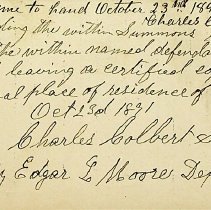 me to hand October 23rd 189
Charles C
ing the within Summons
the within named defenda
leaving a certified co
al place of residence of
Oct 23d 1891
Charles Colbert S
y Edgar L Moore Dep